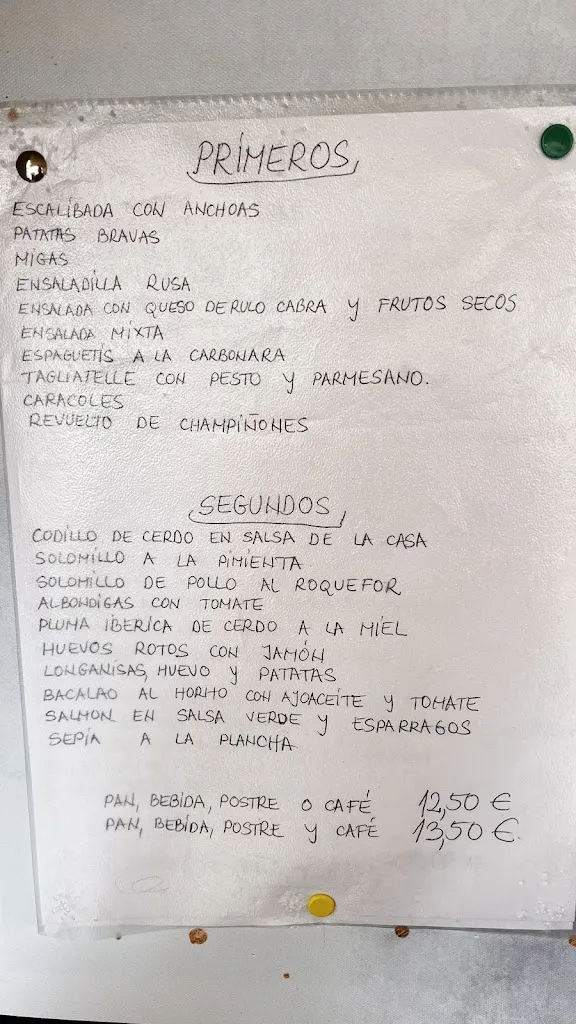 PRÍMEROS
ESCALIBADA CON ANCHOAS
PATATAS BRAVAS
MIGAS
ENSALADILLA RUSA
ENSALADA CON QUESO DE RULO CABRA Y FRUTOS SECOS
ENSALADA MIXTA
ESPAGUETIS A LA CARBONARA
TAGLIATELLE CON PESTO Y PARMESANO.
CARACOLES
REVUELTO DE CHAMPIÑONES
SEGUNDOS
CODILLO DE CERDO EN SALSA DE LA CASA
SOLOMILLO A LA PIMIENTA
SOLOMILLO DE POLLO AL ROQUEFOR
ALBONDIGAS CON TOMATE
PLUMA IBERICA DE CERDO A LA MIEL
HUEVOS ROTOS CON JAMÓN
LONGANISAS, HUEVO Y PATATAS
BACALAO AL HORNO CON AJOACEITE Y TOMATE
SALMON EN SALSA VERDE Y ESPARRAGOS
SEPIA A LA PLANCHA
PAN, BEBIDA, POSTRE O CAFÉ 12,50 €
PAN, BEBIDA, POSTRE Y CAFÉ 13,50 €